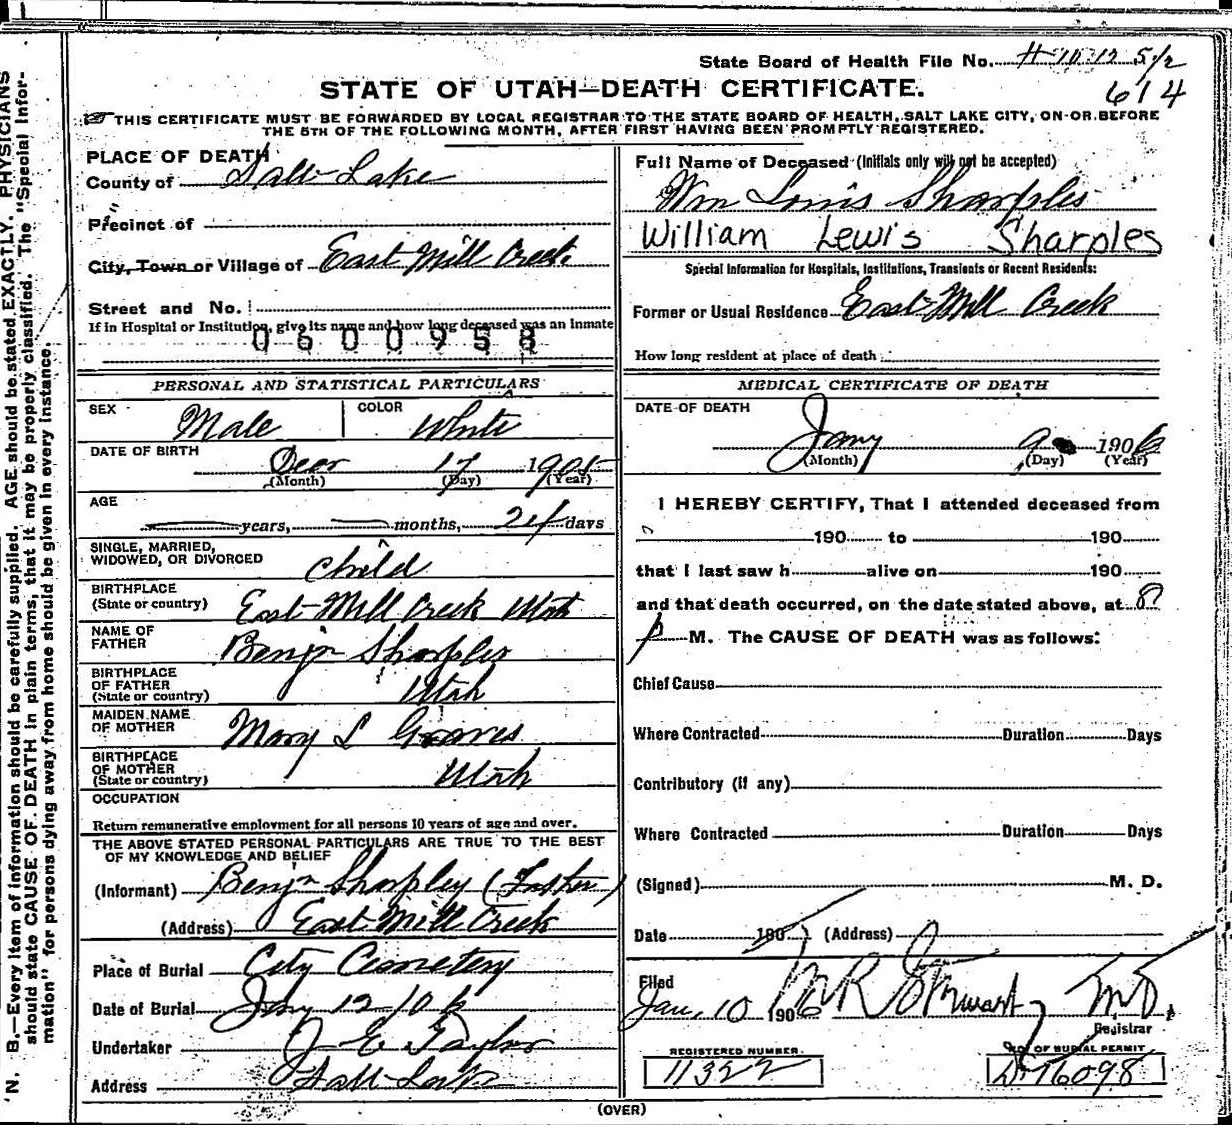 State Board of Health File No.
614
STATE OF UTAH—DEATH CERTIFICATE.
THIS CERTIFICATE MUST BE FORWARDED BY LOCAL REGISTRAR TO THE STATE BOARD OF HEALTH, SALT LAKE CITY, ON OR BEFORE
THE 5TH OF THE FOLLOWING MONTH, AFTER FIRST HAVING BEEN PROMPTLY REGISTERED.
N. B.—Every item of information should be carefully supplied. AGE should be stated EXACTLY. PHYSICIANS
should state CAUSE OF DEATH in plain terms, that it may be properly classified. The "Special Infor-
mation" for persons dying away from home should be given in every instance.
PLACE OF DEATH
County of Salt Lake
Precinct of
City, Town or Village of East Mill Creek
Street and No.
If in Hospital or Institution, give its name and how long deceased was an inmate
0600958
PERSONAL AND STATISTICAL PARTICULARS
SEX Male COLOR White
DATE OF BIRTH Decr 17 1905
(Month) (Day) (Year)
AGE
years, months, 24 days
SINGLE, MARRIED,
WIDOWED, OR DIVORCED Child
BIRTHPLACE
(State or country) East Mill Creek Utah
NAME OF
FATHER Benjn Sharples
BIRTHPLACE
OF FATHER
(State or country) Utah
MAIDEN NAME
OF MOTHER Mary L Graves
BIRTHPLACE
OF MOTHER
(State or country) Utah
OCCUPATION
Return remunerative employment for all persons 10 years of age and over.
THE ABOVE STATED PERSONAL PARTICULARS ARE TRUE TO THE BEST
OF MY KNOWLEDGE AND BELIEF
(Informant) Benjn Sharples (Father)
(Address) East Mill Creek
Place of Burial City Cemetery
Date of Burial Jany 12 - 06
Undertaker J E Taylor
Address Salt Lake
Full Name of Deceased (Initials only will not be accepted)
Wm Louis Sharples
William Lewis Sharples
Special Information for Hospitals, Institutions, Transients or Recent Residents:
Former or Usual Residence East Mill Creek
How long resident at place of death
MEDICAL CERTIFICATE OF DEATH
DATE OF DEATH
Jany 9 1906
(Month) (Day) (Year)
I HEREBY CERTIFY, That I attended deceased from
190 to 190
that I last saw h alive on 190
and that death occurred, on the date stated above, at 8
p M. The CAUSE OF DEATH was as follows:
Chief Cause
Where Contracted Duration Days
Contributory (if any)
Where Contracted Duration Days
(Signed) M. D.
Date 190 (Address)
Filed
Jan, 10 1906 M R Stewart M.D.
Registrar
REGISTERED NUMBER NO. OF BURIAL PERMIT
11322 D 76098
(OVER)